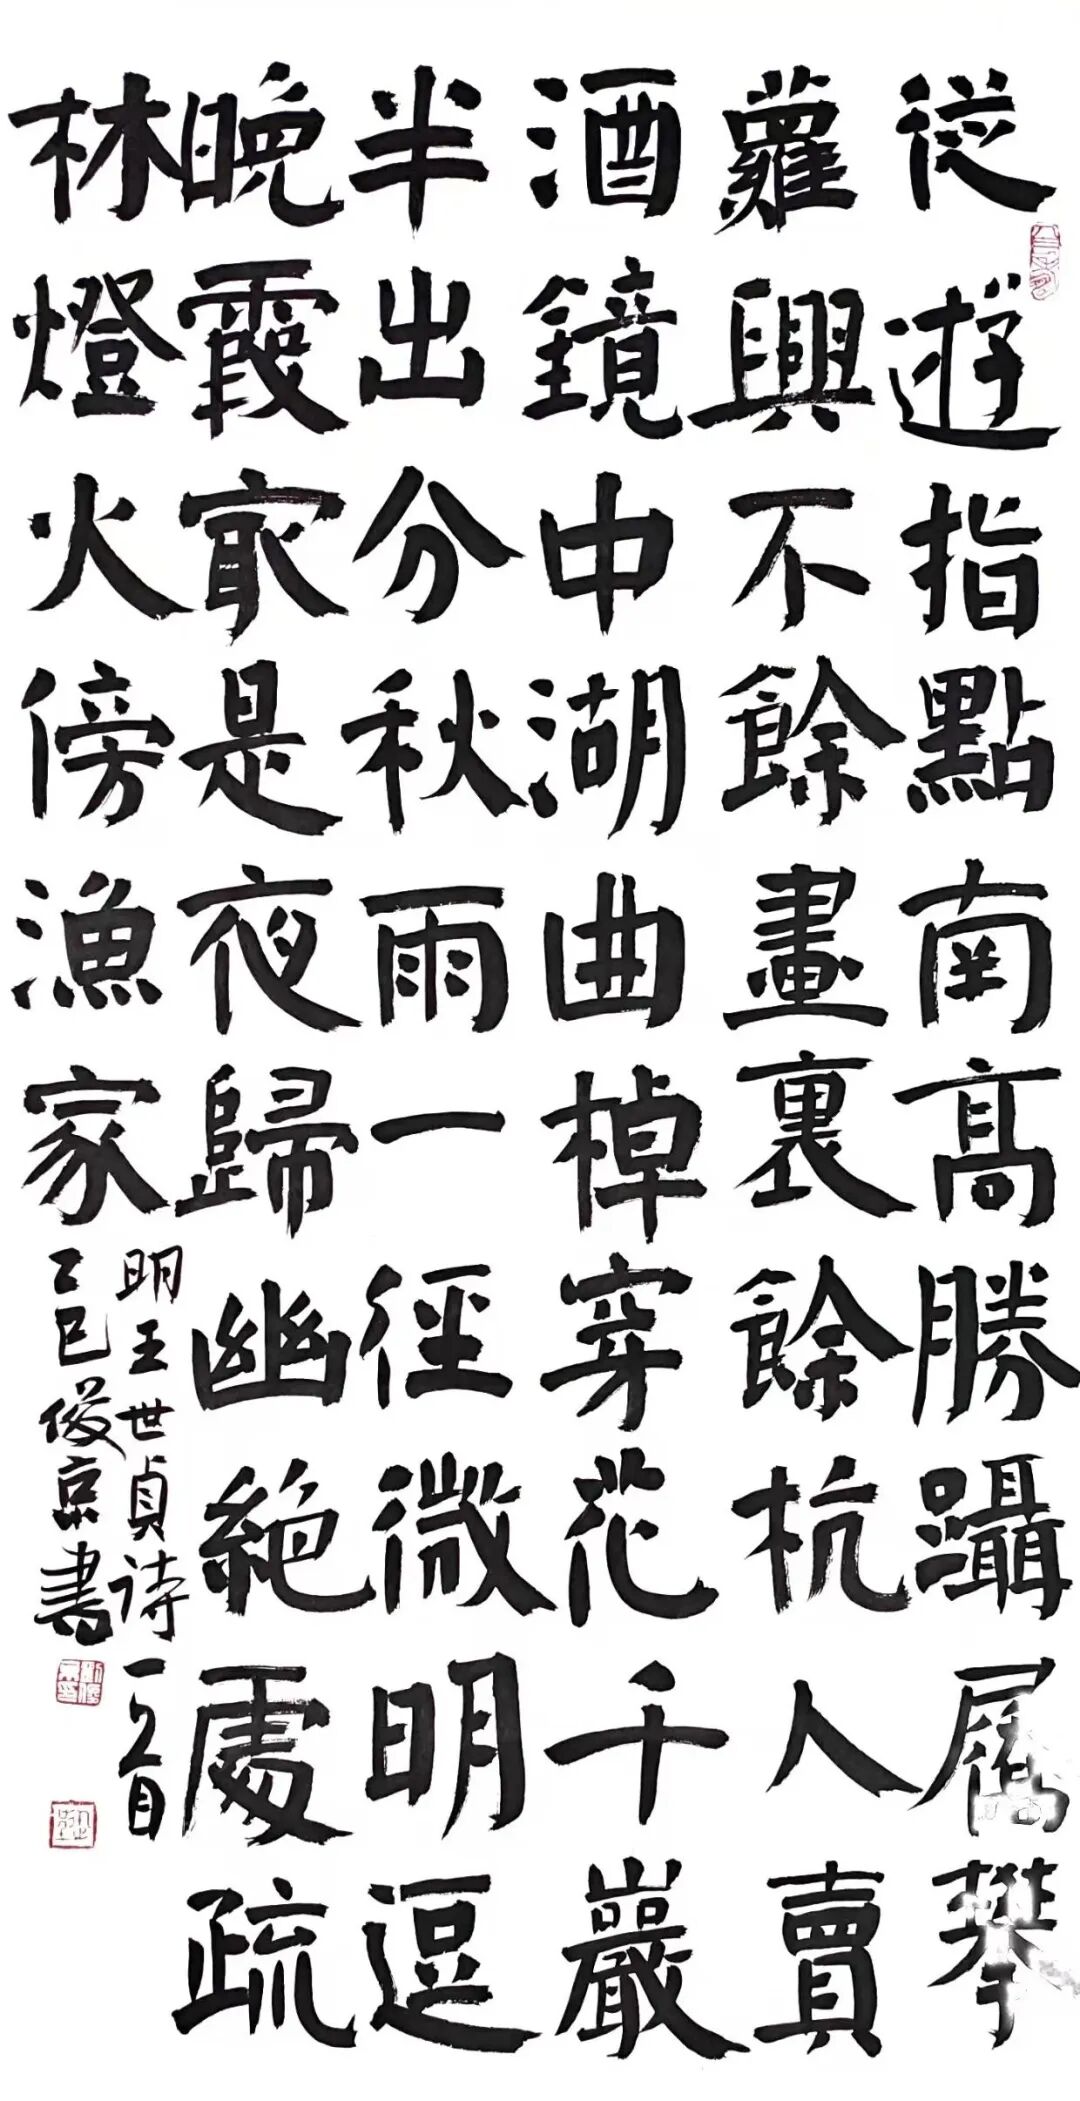 從遊指點南高勝躡屩攀
蘿興不餘畫裏餘杭人賣
酒鏡中湖曲棹穿花千巖
半出分秋雨一徑微明逗
晚霞最是夜歸幽絕處疏
林燈火傍漁家
明王世貞诗
乙巳俊京書